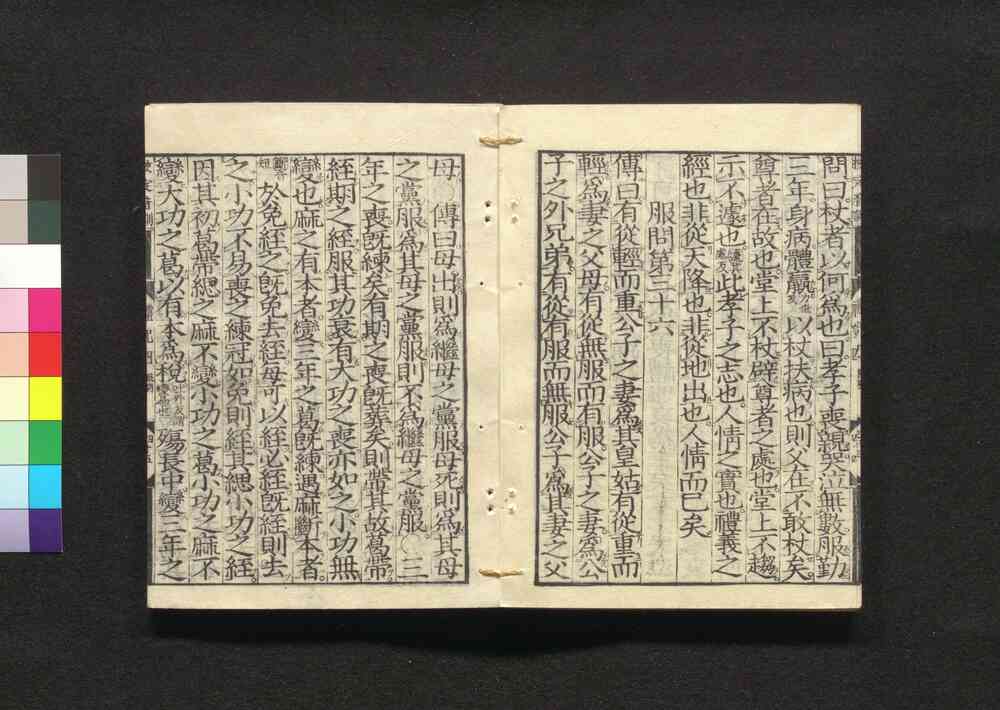 問曰杖者以何為也曰孝子喪親哭泣無數服勤
三年身病體羸以杖扶病也則父在不敢杖矣
尊者在故也堂上不杖辟尊者之處也堂上不趨
示不遽也此孝子之志也人情之實也禮義之
經也非從天降也非從地出也人情而已矣
服問第三十六
傳曰有從輕而重公子之妻為其皇姑有從重而
輕為妻之父母有從無服而有服公子之妻為公
子之外兄弟有從有服而無服公子為其妻之父
母 傳曰母出則為繼母之黨服母死則為其母
之黨服為其母之黨服則不為繼母之黨服○三
年之喪既練矣有期之喪既葬矣則帶其故葛帶
絰期之絰服其功衰有大功之喪亦如之小功無
變也麻之有本者變三年之葛既練遇麻斷本者
於免絰之既免去絰每可以絰必絰既絰則去
之小功不易喪之練冠如免則絰其緦小功之絰
因其初葛帶緦之麻不變小功之葛小功之麻不
變大功之葛以有本為稅殤長中變三年之